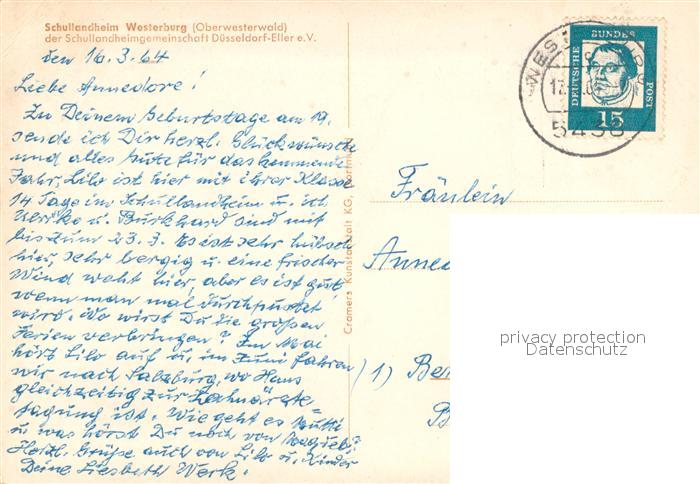 Schullandheim Westerburg (Oberwesterwald)
der Schullandheimgemeinschaft Düsseldorf-Eller e.V.
den 16.3.64
Liebe Annedore!
Zu Deinem Geburtstage am 19.
sende ich Dir herzl. Glückwünsche
und alles Gute für das kommende
Jahr, Lilo ist hier mit ihrer Klasse
14 Tage im Schullandheim u. ich
Ulrike u. Burkhard sind mit
bis zum 23.3. Es ist sehr hübsch
hier, sehr bergig u. eine frischer
Wind weht hier, aber es ist gut
wenn man mal durchpustet
wird. Wo wirst Du die großen
Ferien verbringen? Im Mai
hört Lilo auf u. im Juni fahren
wir nach Salzburg, wo Hans
gleichzeitig zur Zahnärzte-
tagung ist. Wie geht es Mutti
u. was hörst Du noch von
Herzl. Grüße auch von Lilo u. Kinder
Deine Liesbeth Werk.
Cramers Kunstanstalt KG, Dortmund
DEUTSCHE BUNDES POST
15
5438
Fräulein
Anned
(1) Be
privacy protection
Datenschutz